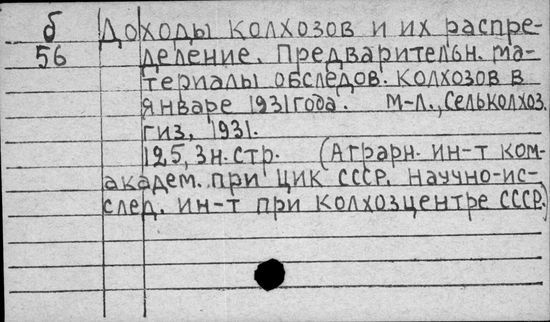 б Доходы колхозов и их распре-
56 деление. Предварительн. ма-
териалы обследов. колхозов в
январе 1931 года. М-Л., Сельколхоз
гиз, 1931.
125, 3 н. стр. (Аграрн. ин-т ком-
академ. при ЦИК СССР. Научно-ис-
след. ин-т при Колхозцентре СССР.)